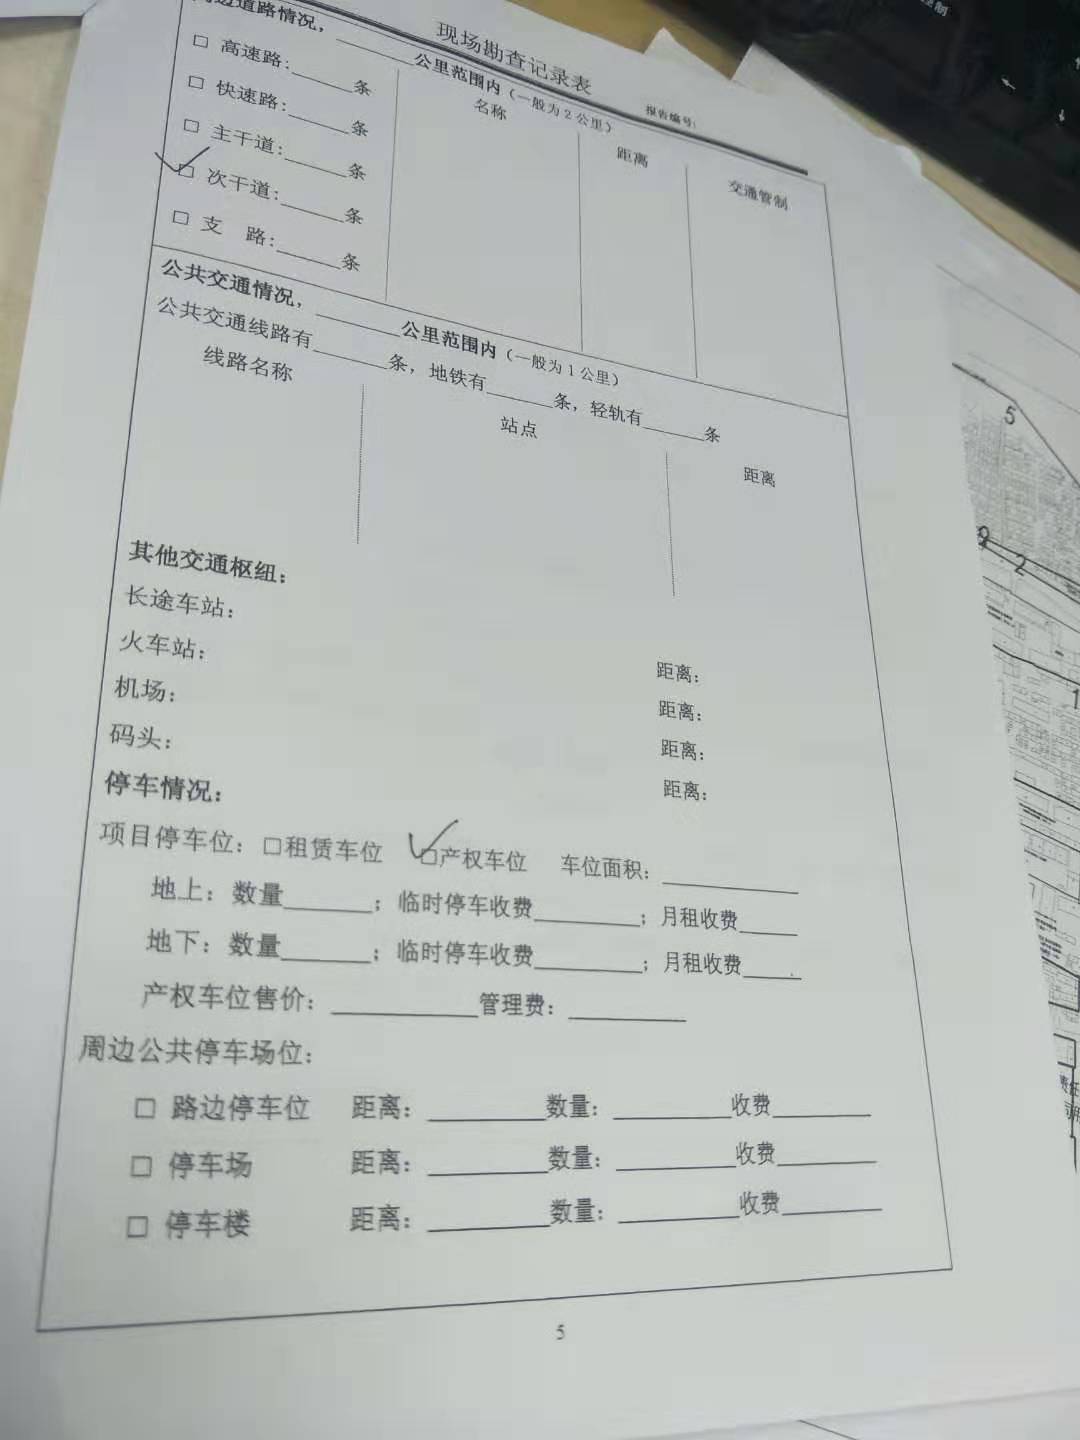 现场勘查记录表
报告编号:
周边道路情况，______公里范围内（一般为2公里）
□ 高速路:______条 名称 距离 交通管制
□ 快速路:______条
□ 主干道:______条
□ 次干道:______条
□ 支 路:______条
公共交通情况，______公里范围内（一般为1公里）
公共交通线路有______条，地铁有______条，轻轨有______条
线路名称 站点 距离
其他交通枢纽：
长途车站： 距离：
火车站： 距离：
机场： 距离：
码头： 距离：
停车情况：
项目停车位：□租赁车位 □产权车位 车位面积：______
地上：数量______；临时停车收费______；月租收费______
地下：数量______；临时停车收费______；月租收费______
产权车位售价：______管理费：______
周边公共停车场位：
□ 路边停车位 距离：______数量：______收费______
□ 停车场 距离：______数量：______收费______
□ 停车楼 距离：______数量：______收费______
5
5
9
2
1